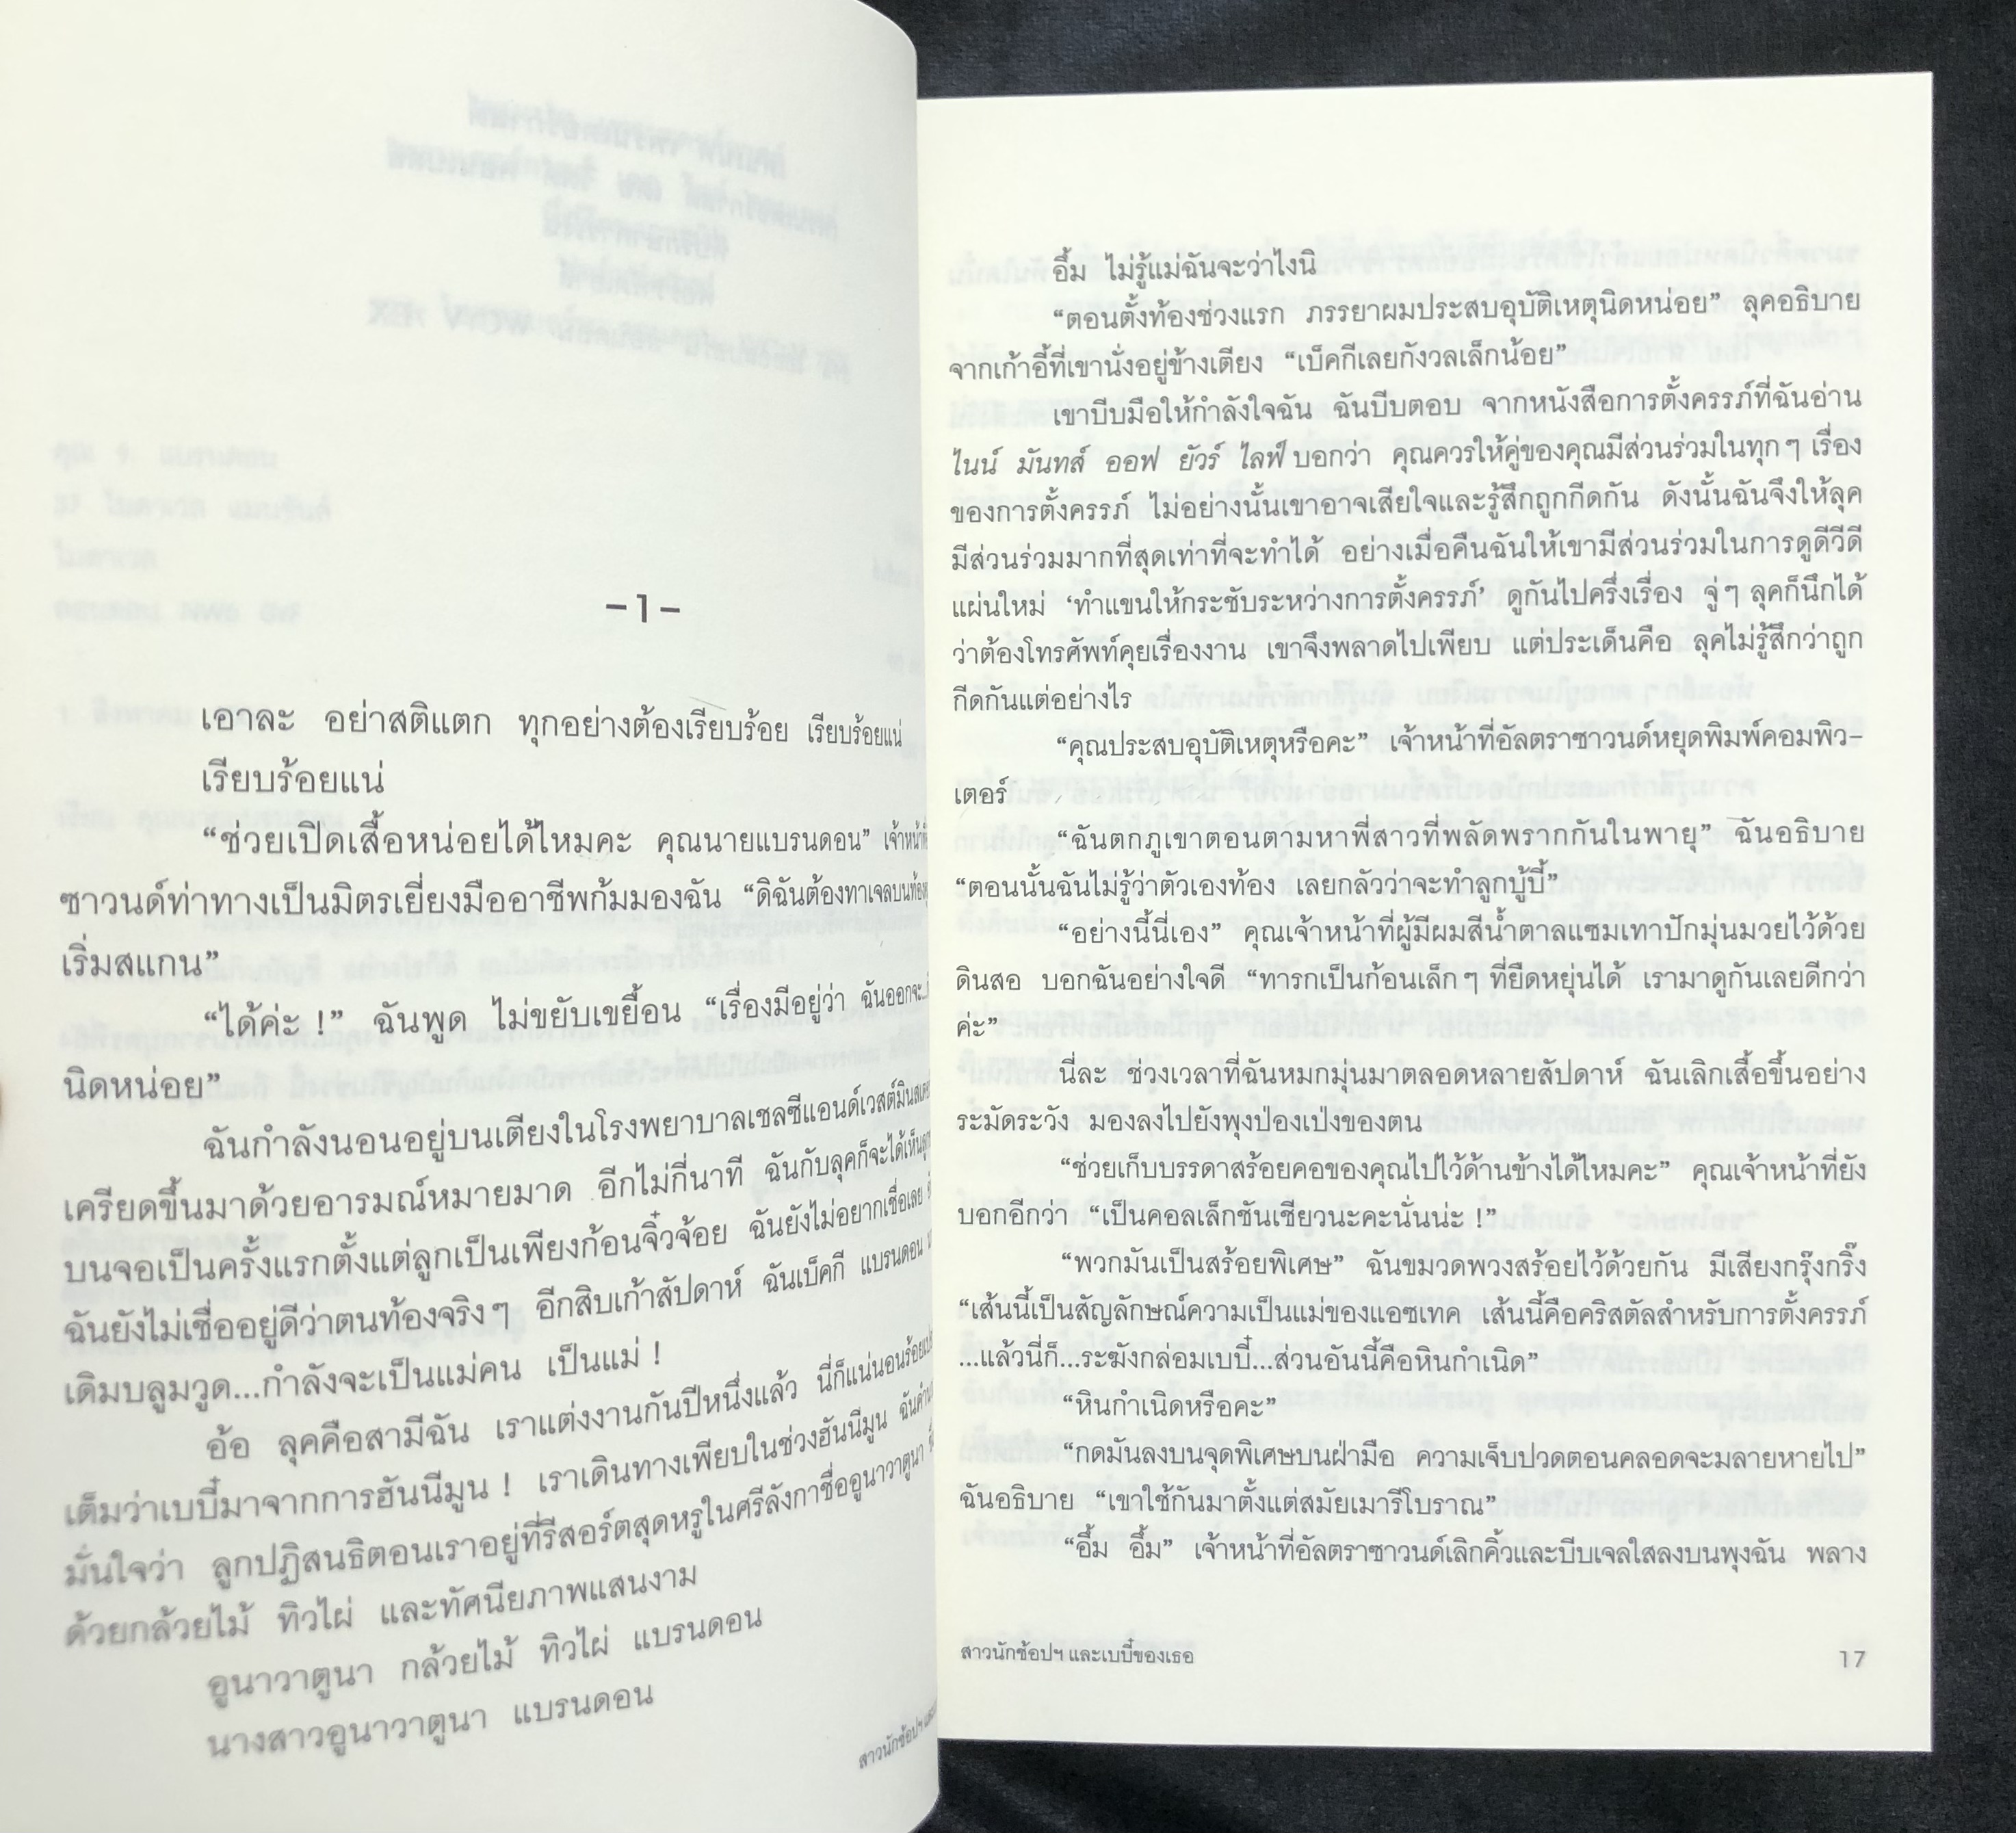 –1–
เอาละ อย่าสติแตก ทุกอย่างต้องเรียบร้อย เรียบร้อยแน่
เรียบร้อยแน่
“ช่วยเปิดเสื้อหน่อยได้ไหมคะ คุณนายแบรนดอน”
ซาวนด์ท่าทางเป็นมิตรเยี่ยงมืออาชีพก้มมองฉัน “ดิฉันต้องทาเจลบนท้อง
เริ่มสแกน”
“ได้ค่ะ !” ฉันพูด ไม่ขยับเขยื้อน “เรื่องมีอยู่ว่า ฉันออกจะ
นิดหน่อย”
ฉันกำลังนอนอยู่บนเตียงในโรงพยาบาลเชลซีแอนด์เวสต์มินสเตอร์
เครียดขึ้นมาด้วยอารมณ์หมายมาด อีกไม่กี่นาที ฉันกับลุคก็จะได้เห็น
บนจอเป็นครั้งแรกตั้งแต่ลูกเป็นเพียงก้อนจิ๋วจ้อย ฉันยังไม่อยากเชื่อเลย
ฉันยังไม่เชื่ออยู่ดีว่าตนท้องจริงๆ อีกสิบเก้าสัปดาห์ ฉันเบ็คกี แบรนดอน
เดิมบลูมวูด...กำลังจะเป็นแม่คน เป็นแม่ !
อ้อ ลุคคือสามีฉัน เราแต่งงานกันปีหนึ่งแล้ว นี่ก็แน่นอนร้อย
เต็มว่าเบบี๋มาจากการฮันนีมูน ! เราเดินทางเพียบในช่วงฮันนีมูน
มั่นใจว่า ลูกปฏิสนธิตอนเราอยู่ที่รีสอร์ตสุดหรูในศรีลังกาชื่ออูนาวาตูนา
ด้วยกล้วยไม้ ทิวไผ่ และทัศนียภาพแสนงาม
อูนาวาตูนา กล้วยไม้ ทิวไผ่ แบรนดอน
นางสาวอูนาวาตูนา แบรนดอน
สาวนักช้อปฯ
อึ้ม ไม่รู้แม่ฉันจะว่าไงนิ
“ตอนตั้งท้องช่วงแรก ภรรยาผมประสบอุบัติเหตุนิดหน่อย” ลุคอธิบาย
จากเก้าอี้ที่เขานั่งอยู่ข้างเตียง “เบ็คกีเลยกังวลเล็กน้อย”
เขาบีบมือให้กำลังใจฉัน ฉันบีบตอบ จากหนังสือการตั้งครรภ์ที่ฉันอ่าน
ไนน์ มันทส์ ออฟ ยัวร์ ไลฟ์ บอกว่า คุณควรให้คู่ของคุณมีส่วนร่วมในทุกๆ เรื่อง
ของการตั้งครรภ์ ไม่อย่างนั้นเขาอาจเสียใจและรู้สึกถูกกีดกัน ดังนั้นฉันจึงให้ลุค
มีส่วนร่วมมากที่สุดเท่าที่จะทำได้ อย่างเมื่อคืนฉันให้เขามีส่วนร่วมในการดูดีวีดี
แผ่นใหม่ ‘ทำแขนให้กระชับระหว่างการตั้งครรภ์’ ดูกันไปครึ่งเรื่อง จู่ๆ ลุคก็นึกได้
ว่าต้องโทรศัพท์คุยเรื่องงาน เขาจึงพลาดไปเพียบ แต่ประเด็นคือ ลุคไม่รู้สึกว่าถูก
กีดกันแต่อย่างไร
“คุณประสบอุบัติเหตุหรือคะ” เจ้าหน้าที่อัลตราซาวนด์หยุดพิมพ์คอมพิว–
เตอร์
“ฉันตกภูเขาตอนตามหาพี่สาวที่พลัดพรากกันในพายุ” ฉันอธิบาย
“ตอนนั้นฉันไม่รู้ว่าตัวเองท้อง เลยกลัวว่าจะทำลูกบู้บี้”
“อย่างนี้นี่เอง” คุณเจ้าหน้าที่ผู้มีผมสีน้ำตาลแซมเทาปักมุ่นมวยไว้ด้วย
ดินสอ บอกฉันอย่างใจดี “ทารกเป็นก้อนเล็กๆ ที่ยืดหยุ่นได้ เรามาดูกันเลยดีกว่า
ค่ะ”
นี่ละ ช่วงเวลาที่ฉันหมกมุ่นมาตลอดหลายสัปดาห์ ฉันเลิกเสื้อขึ้นอย่าง
ระมัดระวัง มองลงไปยังพุงป่องเป่งของตน
“ช่วยเก็บบรรดาสร้อยคอของคุณไปไว้ด้านข้างได้ไหมคะ” คุณเจ้าหน้าที่ยัง
บอกอีกว่า “เป็นคอลเล็กชันเชียวนะคะนั่นน่ะ !”
“พวกมันเป็นสร้อยพิเศษ” ฉันขมวดพวงสร้อยไว้ด้วยกัน มีเสียงกรุ๊งกริ๊ง
“เส้นนี้เป็นสัญลักษณ์ความเป็นแม่ของแอซเทค เส้นนี้คือคริสตัลสำหรับการตั้งครรภ์
...แล้วนี่ก็...ระฆังกล่อมเบบี๋...ส่วนอันนี้คือหินกำเนิด”
“หินกำเนิดหรือคะ”
“กดมันลงบนจุดพิเศษบนฝ่ามือ ความเจ็บปวดตอนคลอดจะมลายหายไป”
ฉันอธิบาย “เขาใช้กันมาตั้งแต่สมัยเมารีโบราณ”
“อึ้ม อึ้ม” เจ้าหน้าที่อัลตราซาวนด์เลิกคิ้วและบีบเจลใสลงบนพุงฉัน พลาง
สาวนักช้อปฯ และเบบี๋ของเธอ 17